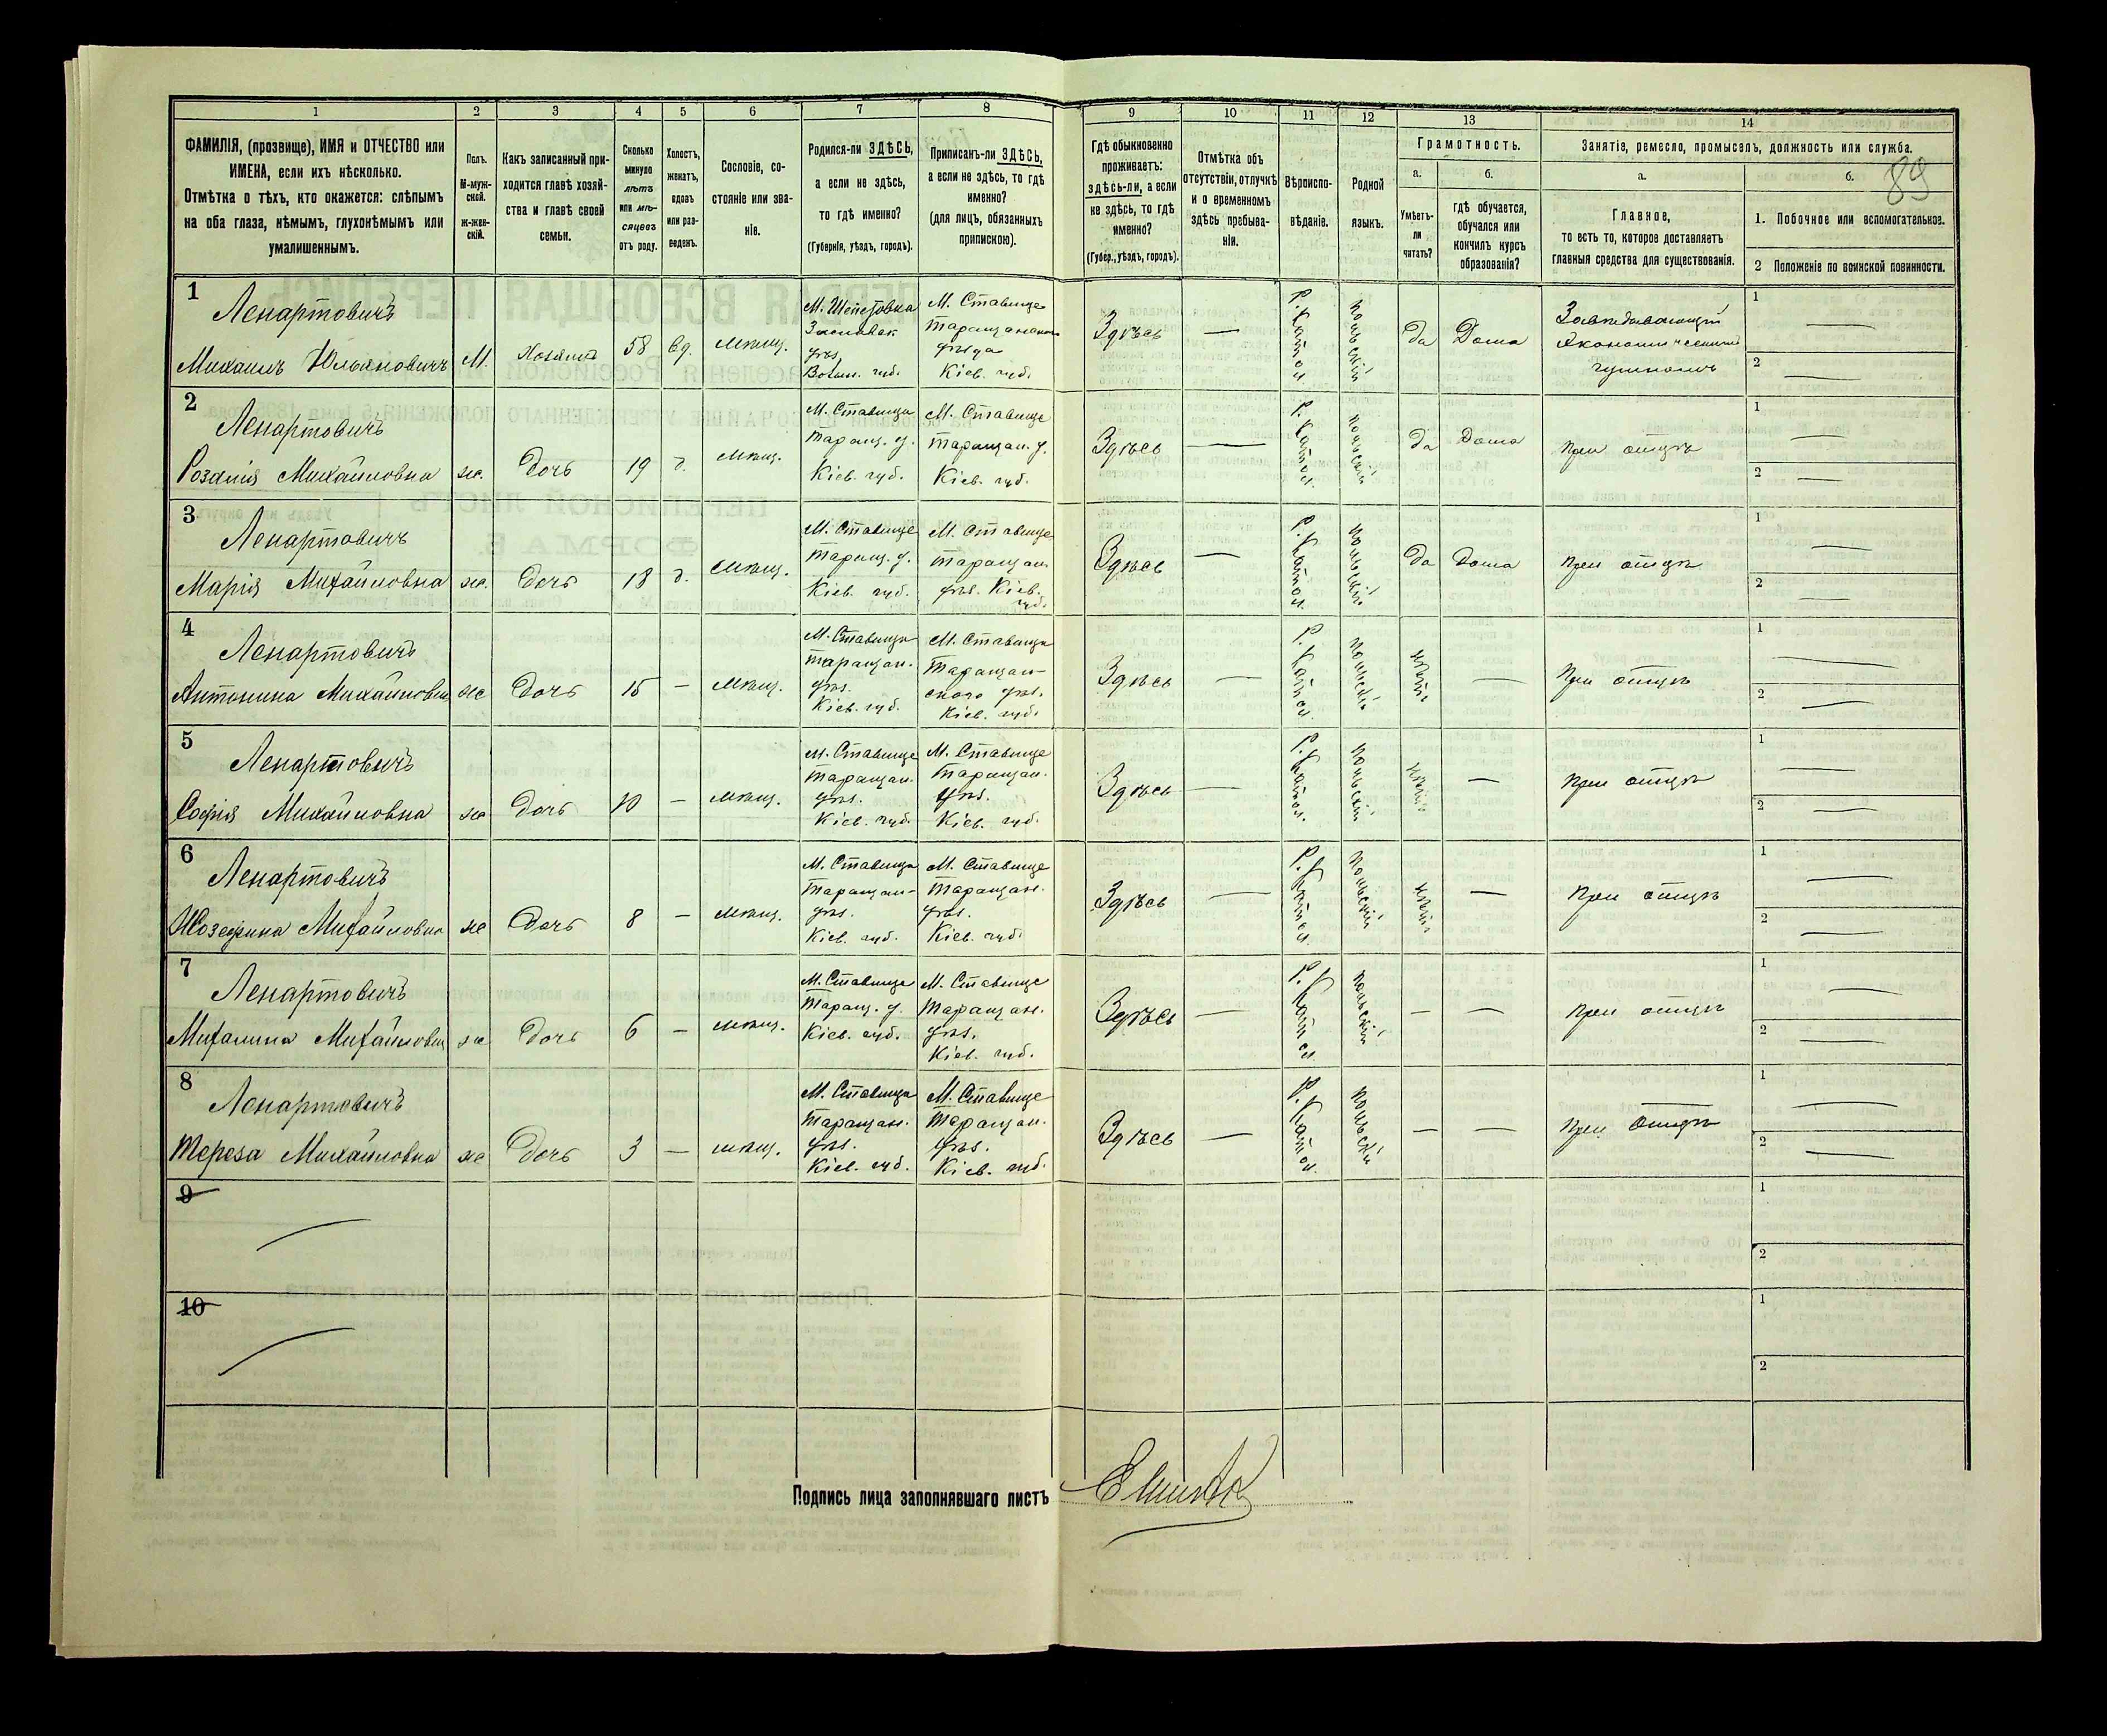 1 2 3 4 5 6 7 8 9 10 11 12 13 14
89
ФАМИЛІЯ, (прозвище), ИМЯ и ОТЧЕСТВО или
ИМЕНА, если ихъ нѣсколько.
Отмѣтка о тѣхъ, кто окажется: слѣпымъ
на оба глаза, нѣмымъ, глухонѣмымъ или
умалишеннымъ.
Полъ.
М-муж-
ской.
ж-жен-
скій.
Какъ записанный при-
ходится главѣ хозяй-
ства и главѣ своей
семьи.
Сколько
минуло
лѣтъ
или мѣ-
сяцевъ
отъ роду.
Холостъ,
женатъ,
вдовъ
или раз-
веденъ.
Сословіе, со-
стояніе или зва-
ніе.
Родился-ли ЗДѢСЬ,
а если не здѣсь,
то гдѣ именно?
(Губернія, уѣздъ, городъ).
Приписанъ-ли ЗДѢСЬ,
а если не здѣсь, то гдѣ
именно?
(для лицъ, обязанныхъ
припискою).
Гдѣ обыкновенно
проживаетъ:
здѣсь-ли, а если
не здѣсь, то гдѣ
именно?
(Губер., уѣздъ, городъ).
Отмѣтка объ
отсутствіи, отлучкѣ
и о временномъ
здѣсь пребыва-
ніи.
Вѣроиспо-
вѣданіе.
Родной
языкъ.
Грамотность.
а.
Умѣетъ-
ли
читать?
б.
гдѣ обучается,
обучался или
кончилъ курсъ
образованія?
Занятіе, ремесло, промыселъ, должность или служба.
а.
Главное,
то есть то, которое доставляетъ
главныя средства для существованія.
б.
1. Побочное или вспомогательное.
2 Положеніе по воинской повинности.
1
Ленартовичъ
Михаилъ Юльяновичъ
М.
Хозяинъ
58
вд.
мѣщ.
М. Шепетовка
Заславск.
уѣз.
Волын. губ.
М. Ставище
Таращанскаго
уѣзда
Кіев. губ.
Здѣсь
—
Р. Катол.
польскій
да
Дома
Завѣдывающій
Экономическимъ
1 —
2 —
2
Ленартовичъ
Розалія Михайловна
ж.
Дочь
19
д.
мѣщ.
М. Ставище
Таращ. у.
Кіев. губ.
М. Ставище
Таращан. у.
Кіев. губ.
Здѣсь
—
Р. Катол.
польскій
да
Дома
При отцѣ
1 —
2 —
3
Ленартовичъ
Марія Михайловна
ж.
Дочь
18
д.
мѣщ.
М. Ставище
Таращ. у.
Кіев. губ.
М. Ставище
Таращан.
уѣз. Кіев.
губ.
Здѣсь
—
Р. Катол.
польскій
да
Дома
При отцѣ
1 —
2 —
4
Ленартовичъ
Антонина Михайловна
ж
Дочь
15
—
мѣщ.
М. Ставище
Таращан.
уѣз.
Кіев. губ.
М. Ставище
Таращан-
скаго уѣз.
Кіев. губ.
Здѣсь
—
Р. Катол.
польскій
нѣтъ
—
При отцѣ
1 —
2 —
5
Ленартовичъ
Софія Михайловна
ж
Дочь
10
—
мѣщ.
М. Ставище
Таращан.
уѣз.
Кіев. губ.
М. Ставище
Таращан.
уѣз.
Кіев. губ.
Здѣсь
—
Р. Катол.
польскій
нѣтъ
—
При отцѣ
1 —
2 —
6
Ленартовичъ
Юзефина Михайловна
ж
Дочь
8
—
мѣщ.
М. Ставище
Таращан-
уѣз.
Кіев. губ.
М. Ставище
Таращан.
уѣз.
Кіев. губ.
Здѣсь
—
Р. Катол.
польскій
нѣтъ
—
При отцѣ
1 —
2 —
7
Ленартовичъ
Михалина Михайловна
ж
Дочь
6
—
мѣщ.
М. Ставище
Таращ. у.
Кіев. губ.
М. Ставище
Таращан.
уѣз.
Кіев. губ.
Здѣсь
—
Р. Катол.
польскій
—
—
При отцѣ
1 —
2 —
8
Ленартовичъ
Тереза Михайловна
ж
Дочь
3
—
мѣщ.
М. Ставище
Таращан.
уѣз.
Кіев. губ.
М. Ставище
Таращан.
уѣз.
Кіев. губ.
Здѣсь
—
Р. Катол.
польскій
—
—
При отцѣ
1 —
2 —
9
1
2
10
1
2
Подпись лица заполнявшаго листъ